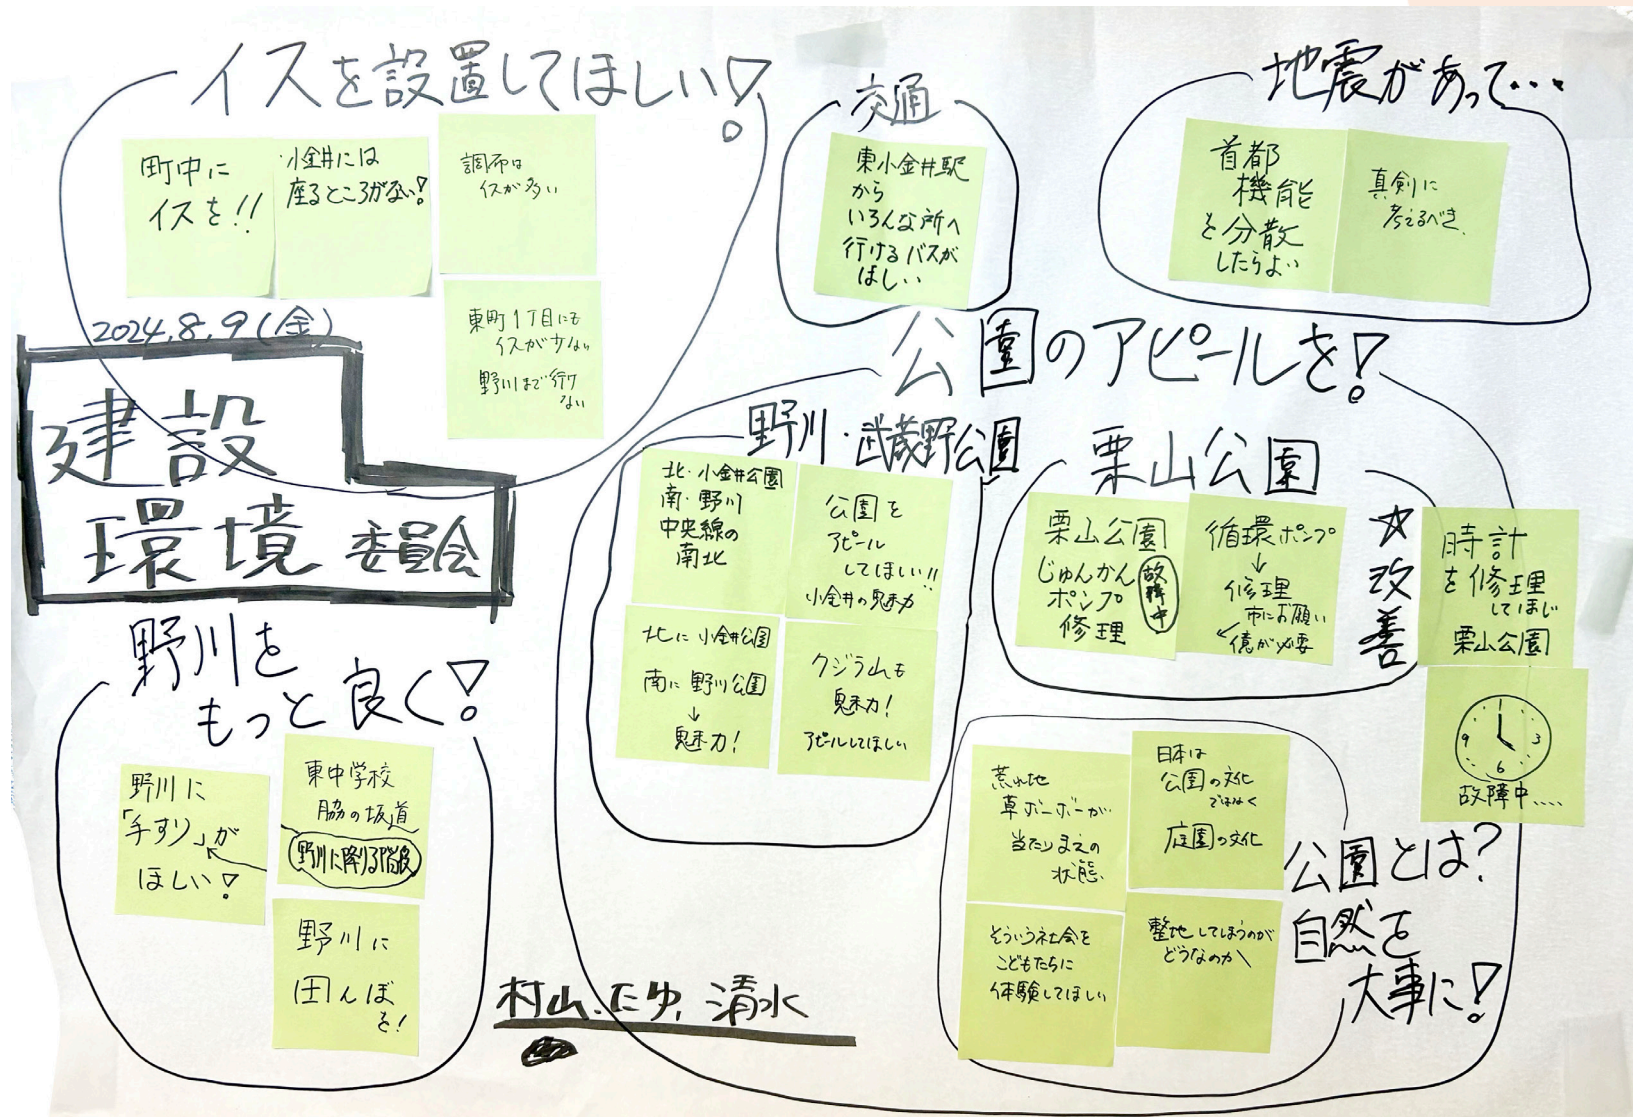 イスを設置してほしい！
町中に
イスを!!
小金井には
座るところがない！
調布は
イスが多い
東町1丁目にも
イスが少ない
野川まで行け
ない
交通
東小金井駅
から
いろんな所へ
行けるバスが
ほしい
地震があって…
首都
機能
を分散
したらよい
真剣に
考えるべき、
2024.8.9(金)
建設
環境委員会
公園のアピールを！
野川・武蔵野公園
北・小金井公園
南・野川
中央線の
南北
公園を
アピール
してほしい!!
小金井の魅力
北に小金井公園
南に野川公園
↓
魅力！
クジラ山も
魅力！
アピールしてほしい
栗山公園
栗山公園
じゅんかん
ポンプ
修理
故障中
循環ポンプ
↓
修理
市にお願い
億が必要
☆改善
時計
を修理
してほしい
栗山公園
9 3
6
故障中....
野川を
もっと良く！
野川に
「手すり」が
ほしい！
東中学校
脇の坂道
野川に降りる階段
野川に
田んぼ
を！
荒れ地
草ボーボーが
当たりまえの
状態、
日本は
公園の文化
ではなく
庭園の文化
そういう社会を
こどもたちに
体験してほしい
整地してしまうのが
どうなのか
公園とは？
自然を
大事に！
村山、たゆ、清水